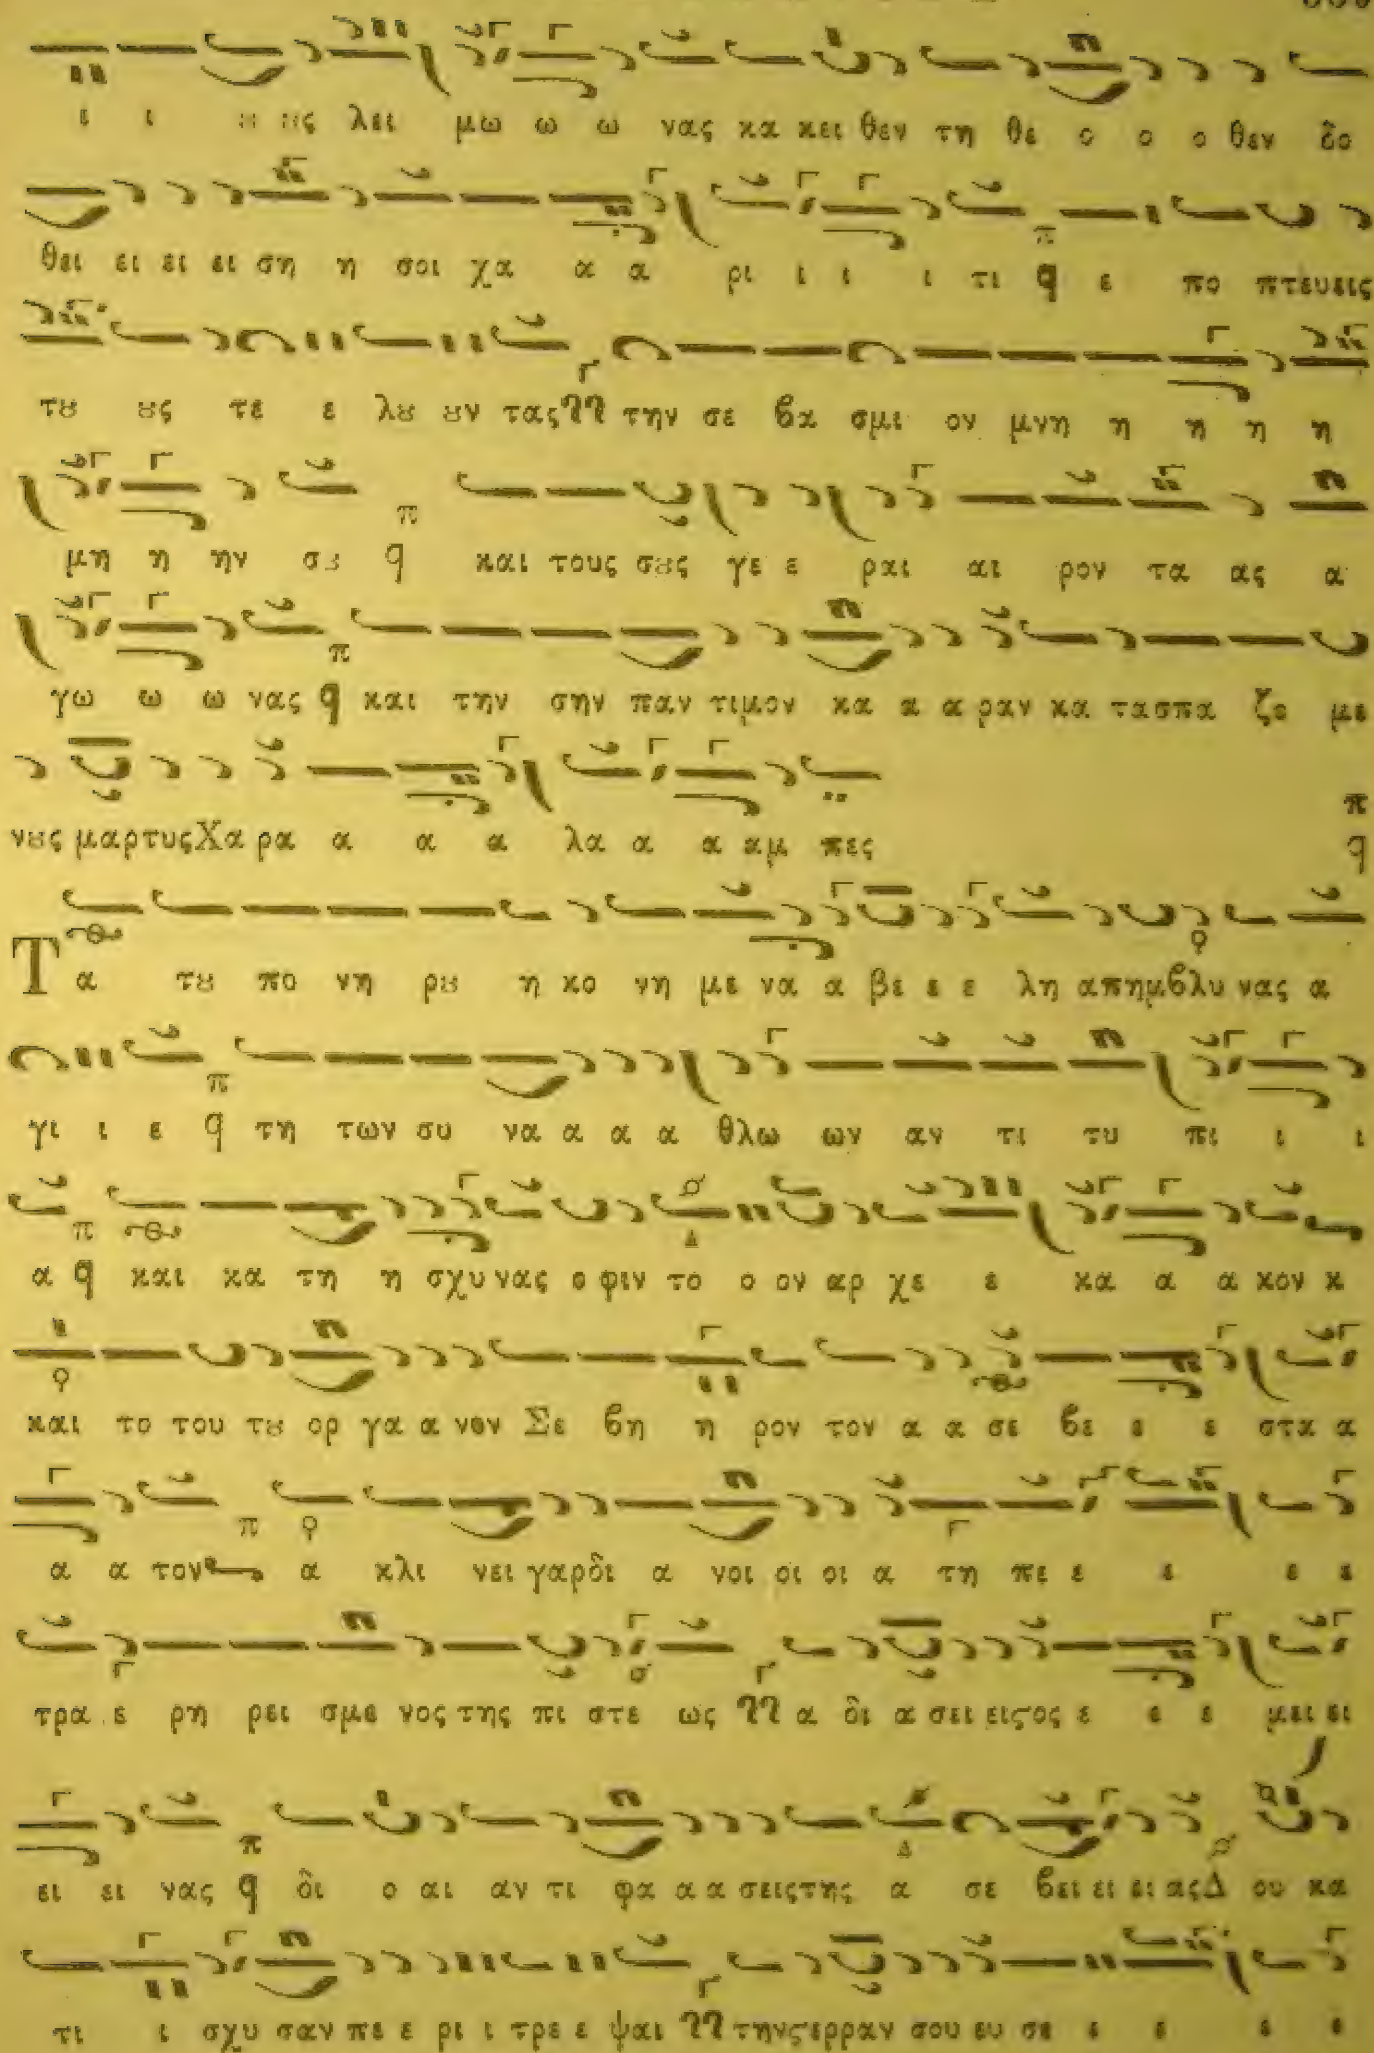 ι ι ȣ ȣς λει μω ω ω νας κα κει θεν τη θε ο ο ο θεν δο
θει ει ει ει ση η σοι χα α α ρι ι ι ι τι ε πο πτευεις
τȣ ȣς τε ε λȣ ȣν τας την σε βα σμι ον μνη η η η η
μη η ην σȣ και τους σȣς γε ε ραι αι ρον τα ας α
γω ω ω νας και την σην παν τιμον κα α α ραν κα τασπα ζο με
νȣς μαρτυς Χα ρα α α α λα α α αμ πες
Τα τȣ πο νη ρȣ η κο νη με να α βε ε ε λη απημβλυ νας α
γι ι ε τη των συ να α α α θλω ων αν τι τυ πι ι ι
α και κα τη η σχυ νας ο φιν το ο ον αρ χε ε κα α α κον κ
και το του τȣ ορ γα α νον Σε βη η ρον τον α α σε βε ε ε στα α
α α τον α κλι νει γαρ δι α νοι οι οι α τη πε ε ε ε ε
τρα ε ρη ρει σμε νος της πι στε ως α δι α σει ειςτος ε ε ε μει ει
ει ει νας δι ο αι αν τι φα α α σεις της α σε βει ει ει ας Δ ου κα
τι ι σχυ σαν πε ε ρι ι τρε ε ψαι την ϛερραν σου ευ σε ε ε ε ε